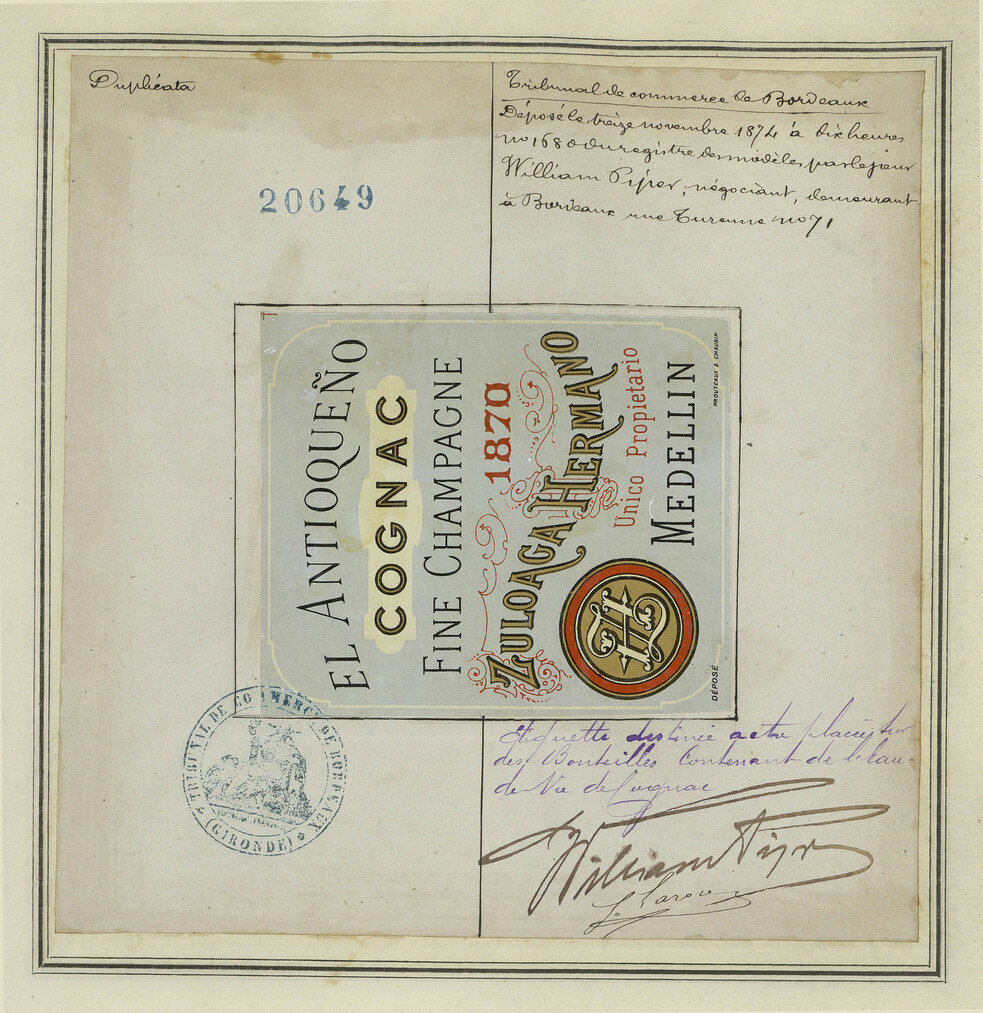 Duplicata
Tribunal de commerce de Bordeaux
Déposé le treize novembre 1874 à dix heures
no 1680 du registre des modèles par le sieur
William Piper, négociant, demeurant
à Bordeaux rue Turenne no 71
20649
EL ANTIOQUEÑO
COGNAC
FINE CHAMPAGNE
1870
ZULOAGA HERMANO
Unico Propietario
MEDELLIN
ZH
DÉPOSÉ
PROUTEAUX & CHAUBIN
TRIBUNAL DE COMMERCE DE BORDEAUX
(GIRONDE)
Etiquette destinée a etre placée sur
des Bouteilles Contenant de l'Eau-
de-Vie de Cognac
William Piper